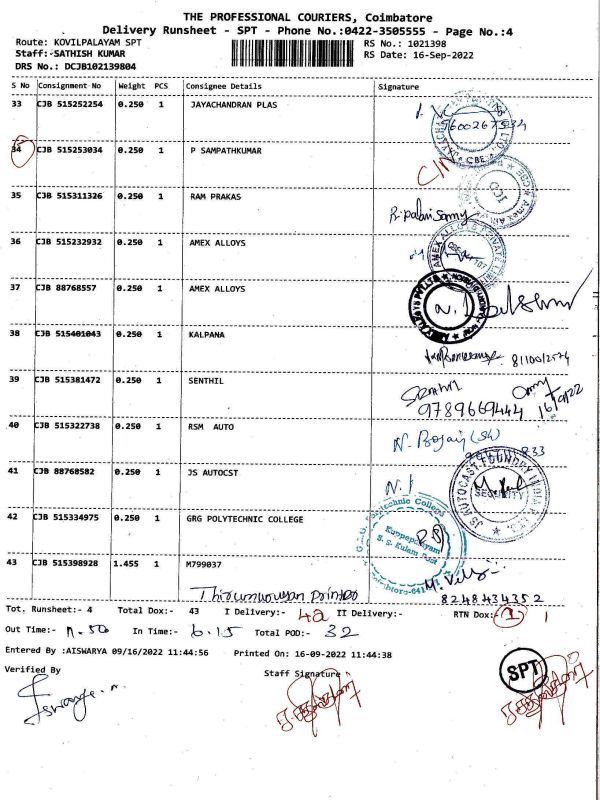 THE PROFESSIONAL COURIERS, Coimbatore
Delivery Runsheet - SPT - Phone No.:0422-3505555 - Page No.:4
Route: KOVILPALAYAM SPT RS No.: 1021398
Staff:-SATHISH KUMAR RS Date: 16-Sep-2022
DRS No.: DCJB102139804
S No Consignment No Weight PCS Consignee Details Signature
33 CJB 515252254 0.250 1 JAYACHANDRAN PLAS
34 CJB 515253034 0.250 1 P SAMPATHKUMAR
35 CJB 515311326 0.250 1 RAM PRAKAS
36 CJB 515232932 0.250 1 AMEX ALLOYS
37 CJB 88768557 0.250 1 AMEX ALLOYS
38 CJB 515401043 0.250 1 KALPANA
39 CJB 515381472 0.250 1 SENTHIL
9789669444 16/9/22
40 CJB 515322738 0.250 1 RSM AUTO
833
41 CJB 88768582 0.250 1 JS AUTOCST
SECURITY
42 CJB 515334975 0.250 1 GRG POLYTECHNIC COLLEGE
Kuppepalayam
S. S. Kulam Post
43 CJB 515398928 1.455 1 M799037
8248434352
Tot. Runsheet:- 4 Total Dox:- 43 I Delivery:- 42 II Delivery:- RTN Dox:- 1 1
Out Time:- 11.50 In Time:- 6.15 Total POD:- 32
Entered By :AISWARYA 09/16/2022 11:44:56 Printed On: 16-09-2022 11:44:38
Verified By Staff Signature
SPT